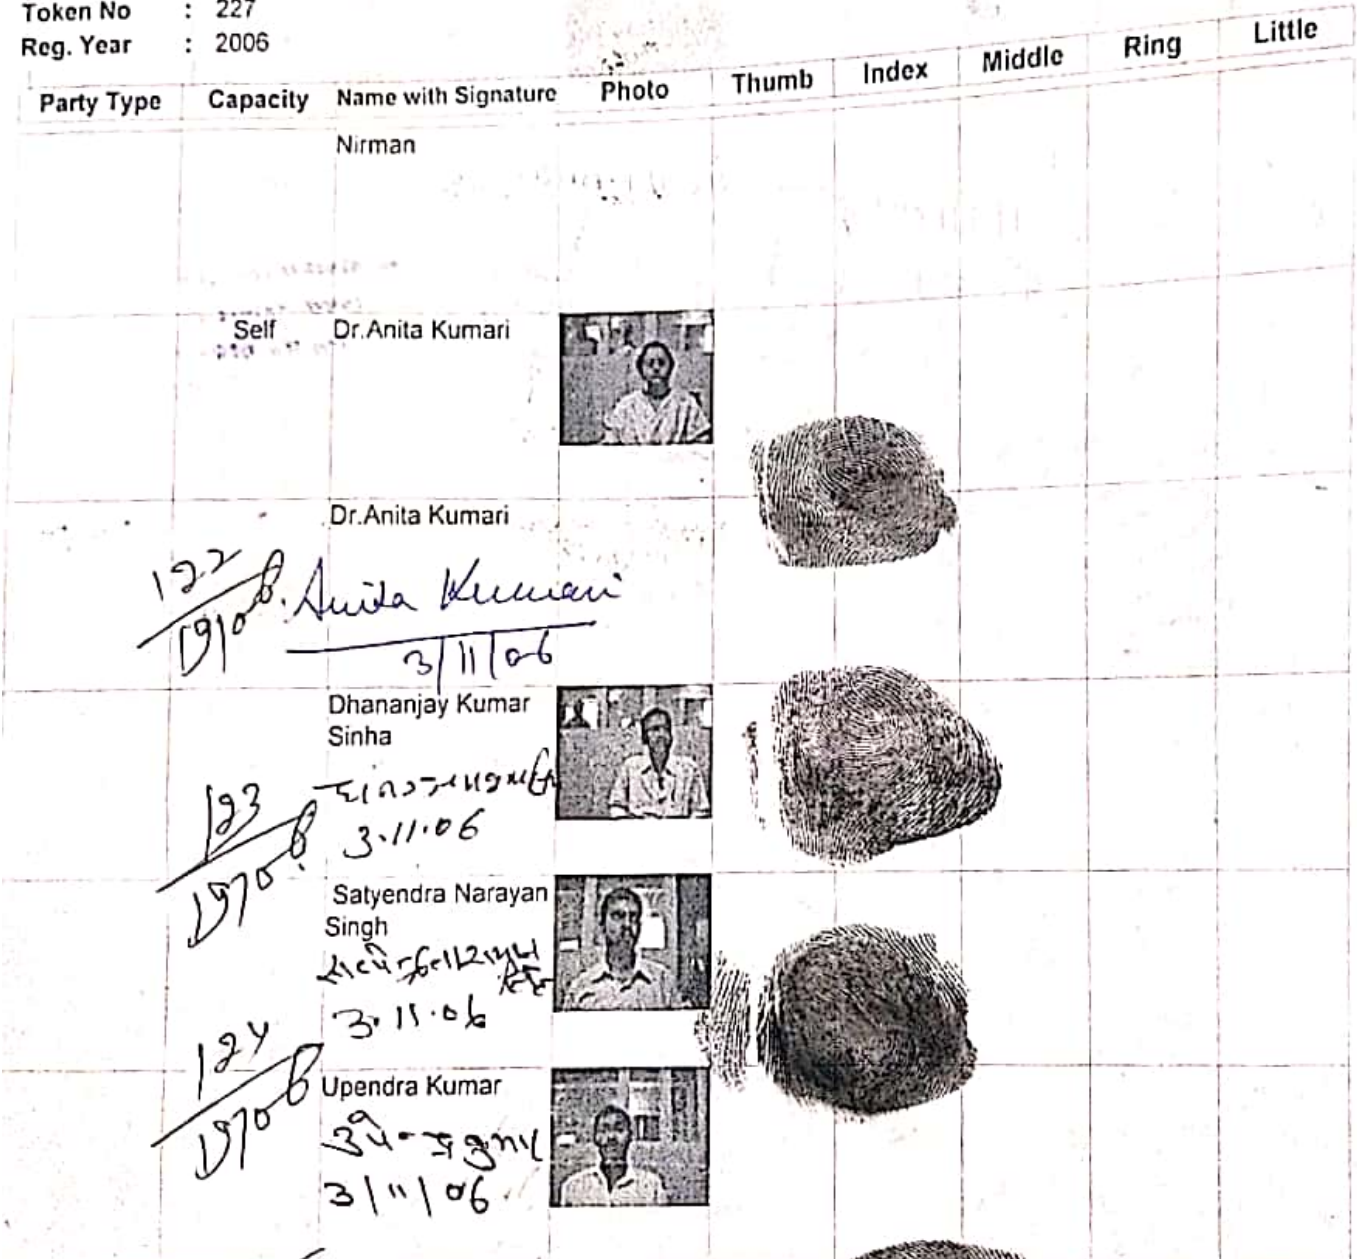 Token No : 227
Reg. Year : 2006
Party Type Capacity Name with Signature Photo Thumb Index Middle Ring Little
Nirman
Self Dr.Anita Kumari
Dr.Anita Kumari
122
Anita Kumari
3/11/06
Dhananjay Kumar
Sinha
123
3.11.06
Satyendra Narayan
Singh
3.11.06
124
Upendra Kumar
उपेन्द्र कुमार
3/11/06